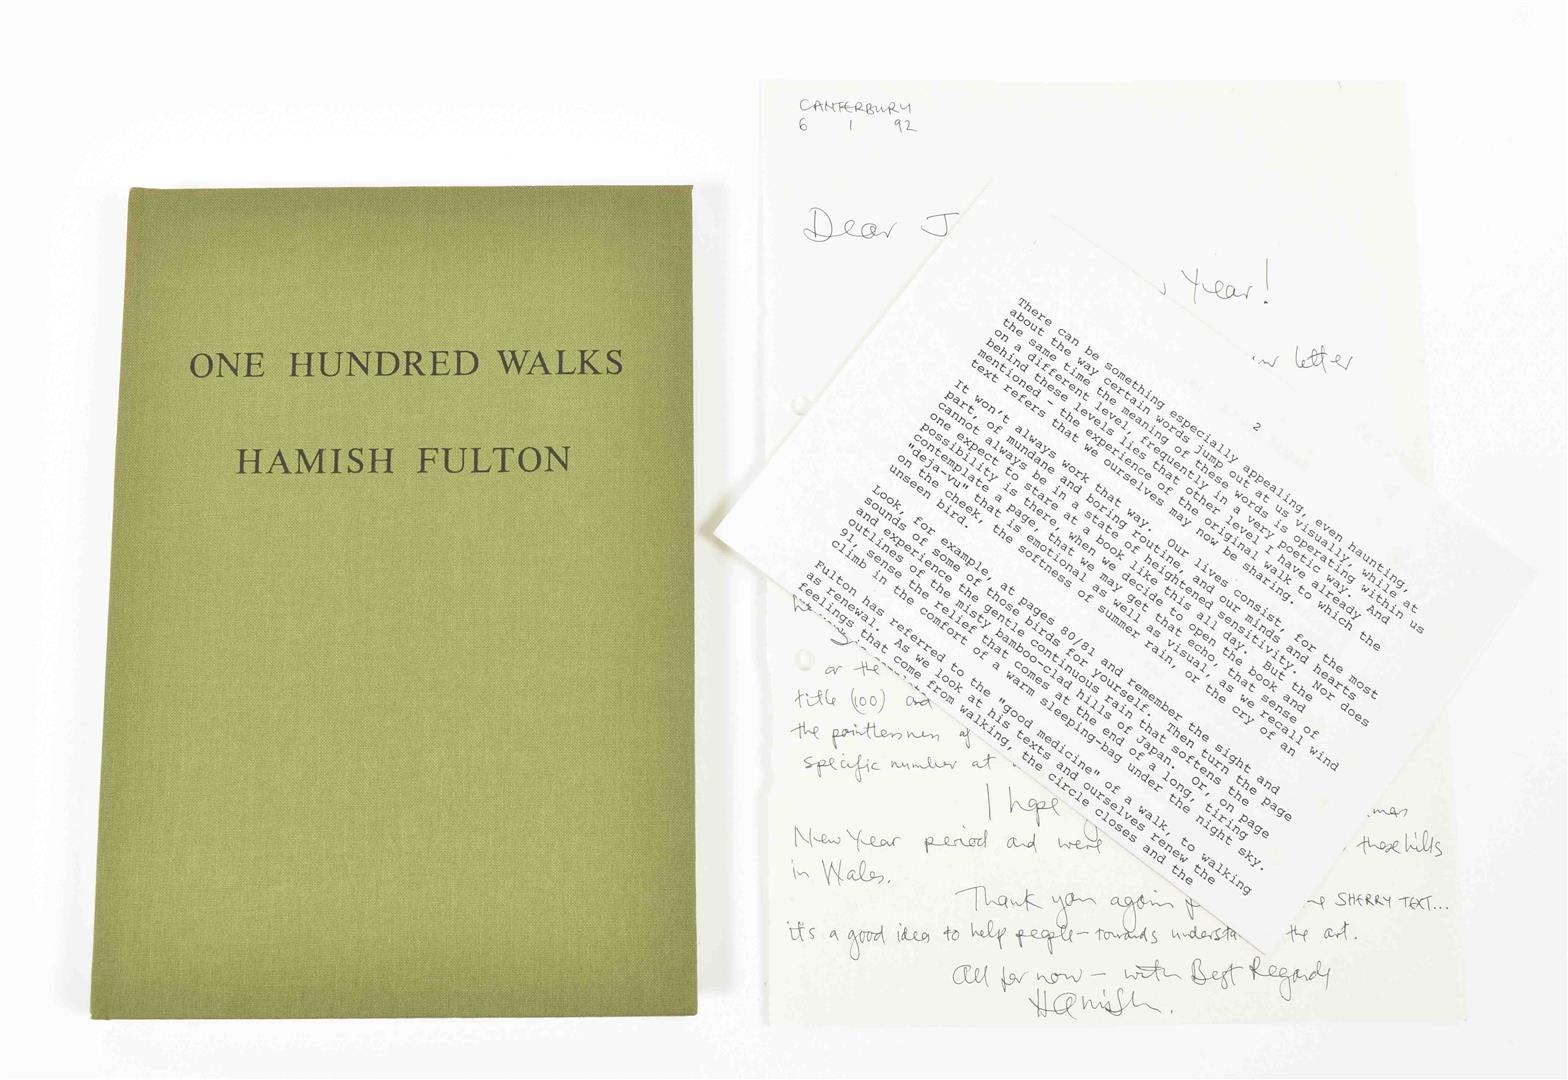 ONE HUNDRED WALKS
HAMISH FULTON
CANTERBURY
6 1 92
Dear J
Year!
letter
2
There can be something especially appealing, even haunting,
about the way certain words jump out at us visually, while at
the same time the meaning of these words is operating within us
on a different level, frequently in a very poetic way. And
behind these levels lies that other level I have already
mentioned - the experience of the original walk to which the
text refers that we ourselves may now be sharing.
It won't always work that way. Our lives consist, for the most
part, of mundane and boring routine, and our minds and hearts
cannot always be in a state of heightened sensitivity. Nor does
one expect to stare at a book like this all day. But the
possibility is there, when we decide to open the book and
contemplate a page, that we may get that echo, that sense of
"deja-vu" that is emotional as well as visual, as we recall wind
on the cheek, the softness of summer rain, or the cry of an
unseen bird.
Look, for example, at pages 80/81 and remember the sight and
sounds of some of those birds for yourself. Then turn the page
and experience the gentle continuous rain that softens the
outlines of the misty bamboo-clad hills of Japan. Or, on page
91, sense the relief that comes at the end of a long, tiring
climb in the comfort of a warm sleeping-bag under the night sky.
Fulton has referred to the "good medicine" of a walk, to walking
as renewal. As we look at his texts and ourselves renew the
feelings that come from walking, the circle closes and the
or the
title (100) and
the pointlessness of
specific number at
I hope
mas
New Year period and were
those hills
in Wales.
Thank you again
SHERRY TEXT...
it's a good idea to help people - towards understa
the art.
All for now - with Best Regards
Hamish.